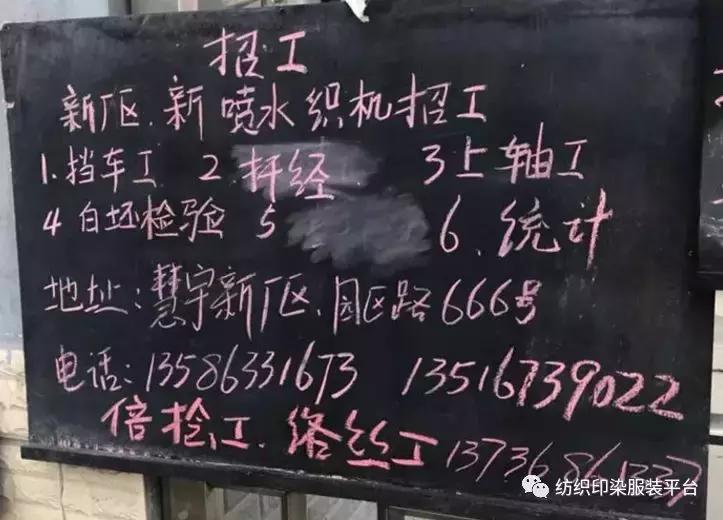 招工
新厂区.新喷水织机招工
1.挡车工 2 扦经 3上轴工
4 白坯检验 5 6.统计
地址:慧宇新厂区.园区路666号
电话:13586331673 13516739022
倍捡工.络丝工13736861337
纺织印染服装平台